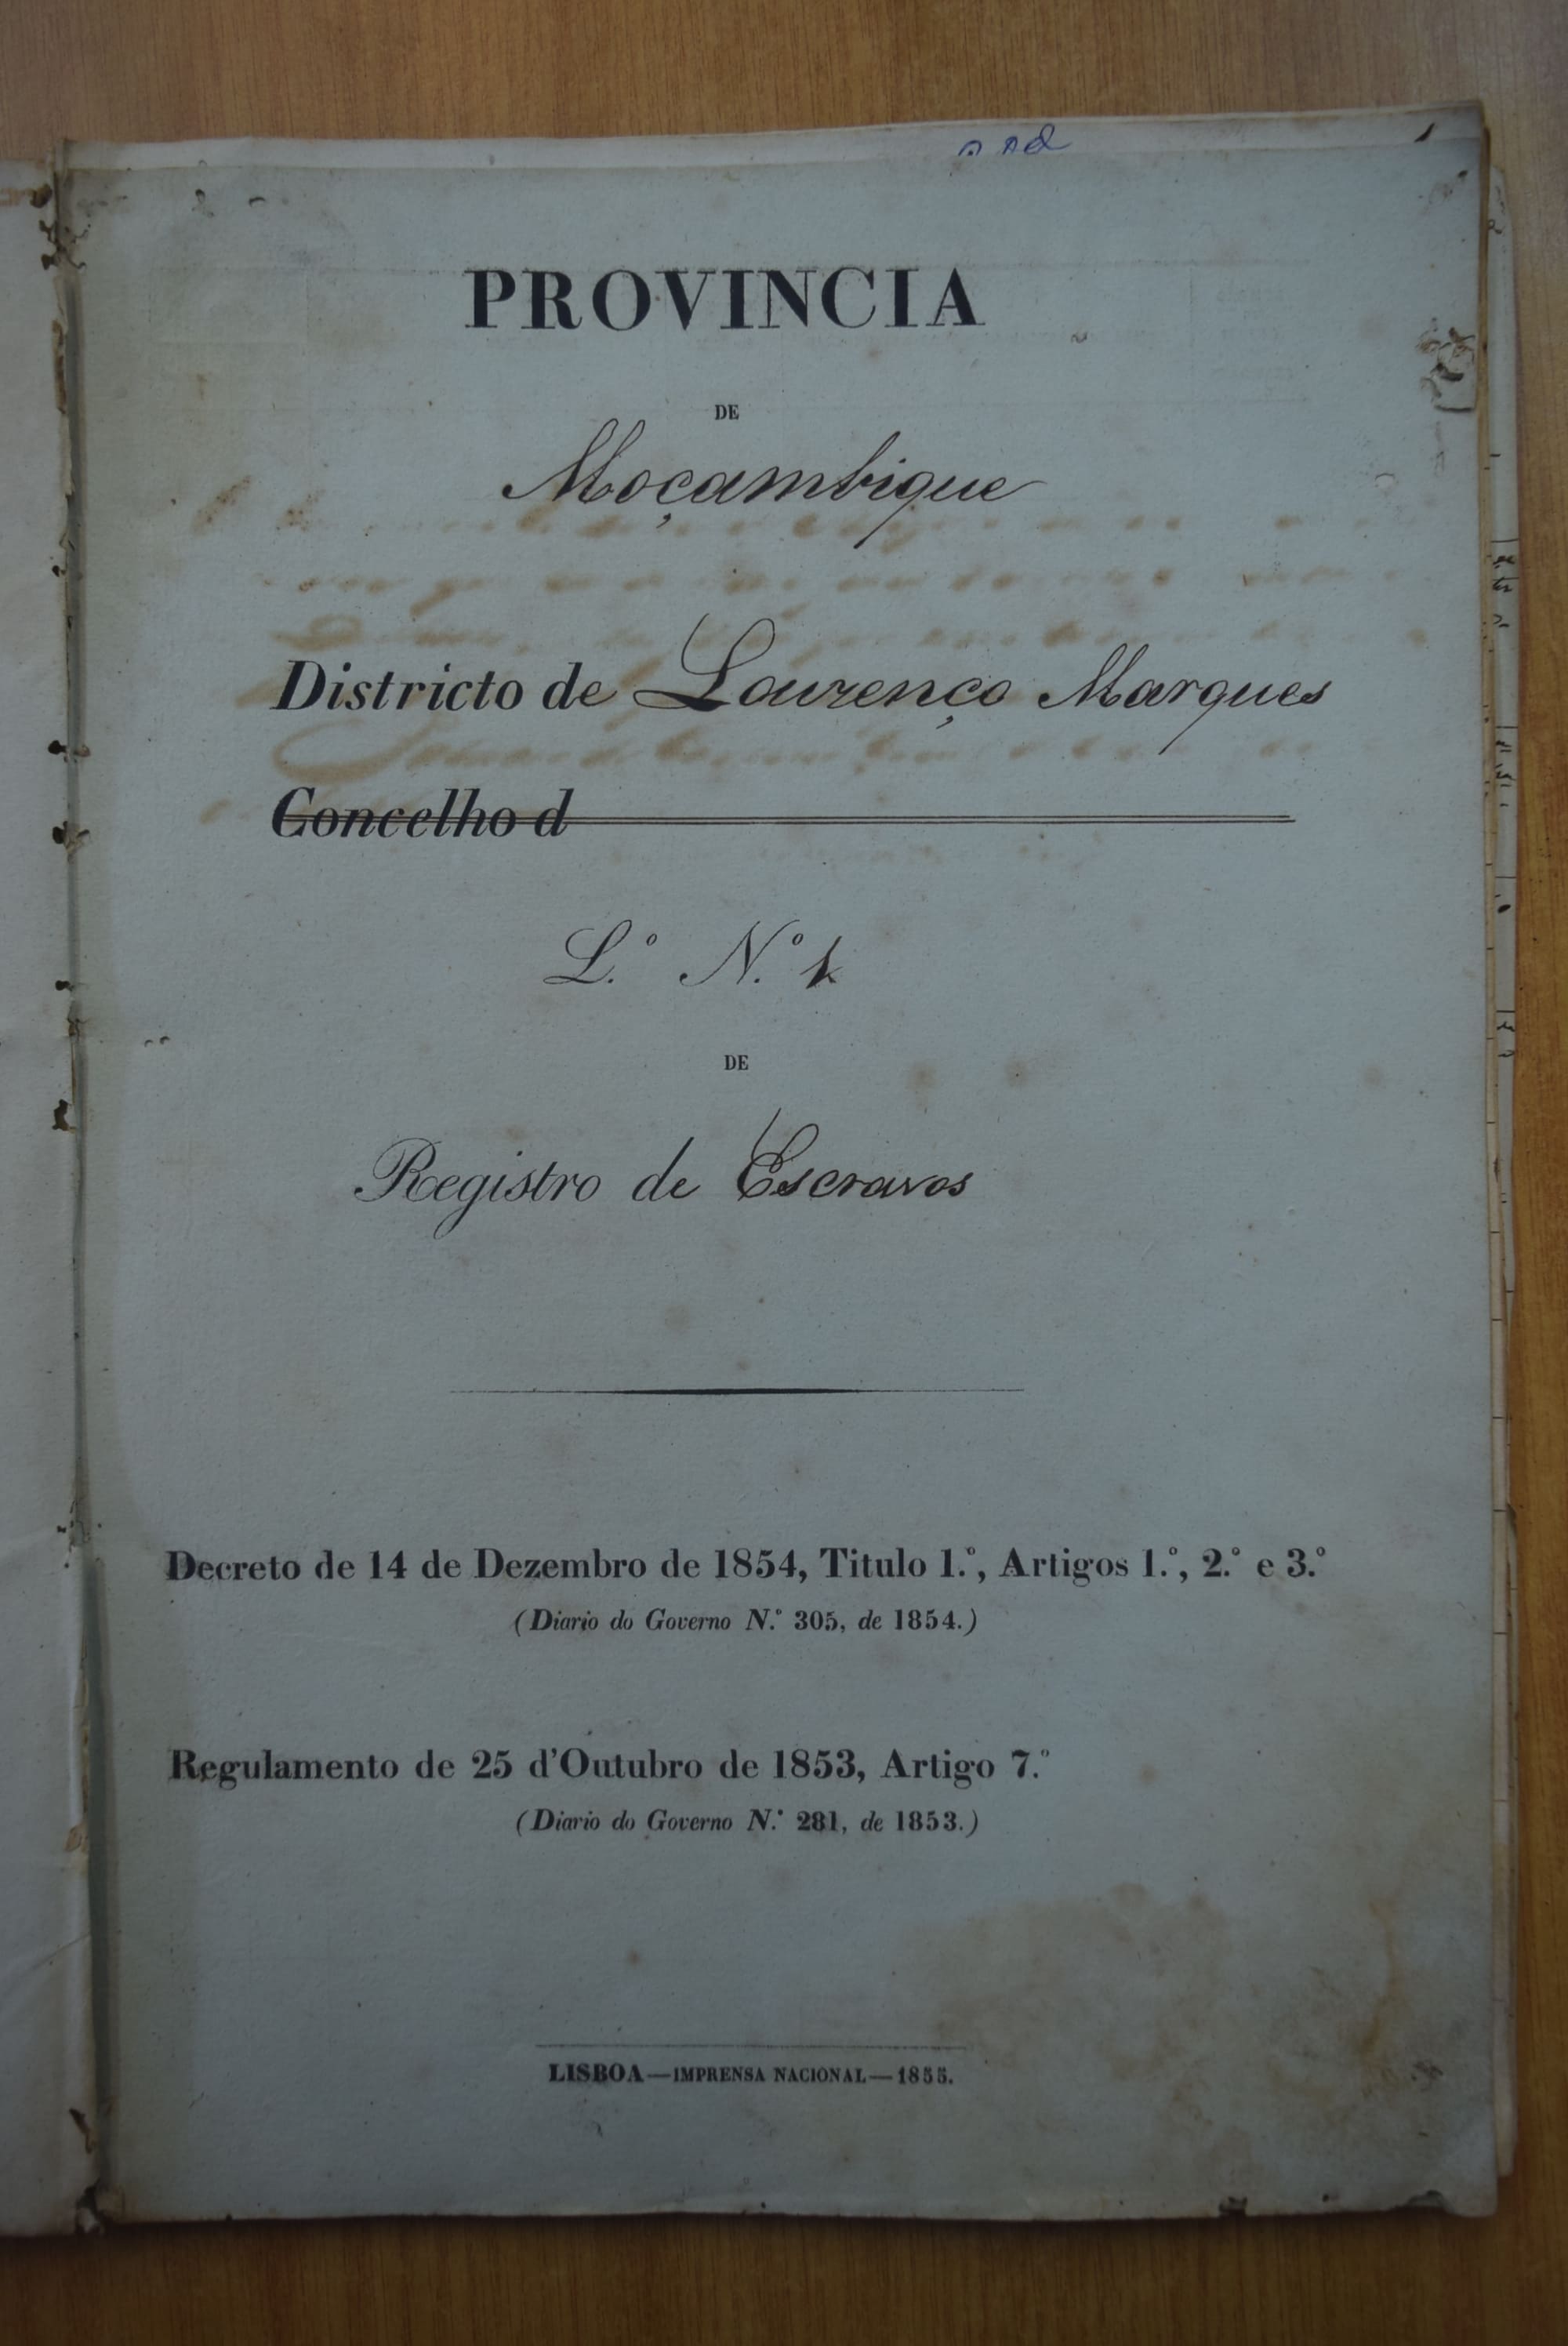 PROVINCIA
DE
Moçambique
Districto de Lourenço Marques
Concelho d
L.º N.º 1
DE
Registro de Escravos
Decreto de 14 de Dezembro de 1854, Titulo 1.º, Artigos 1.º, 2.º e 3.º
(Diario do Governo N.º 305, de 1854.)
Regulamento de 25 d'Outubro de 1853, Artigo 7.º
(Diario do Governo N.º 281, de 1853.)
LISBOA—IMPRENSA NACIONAL—1855.